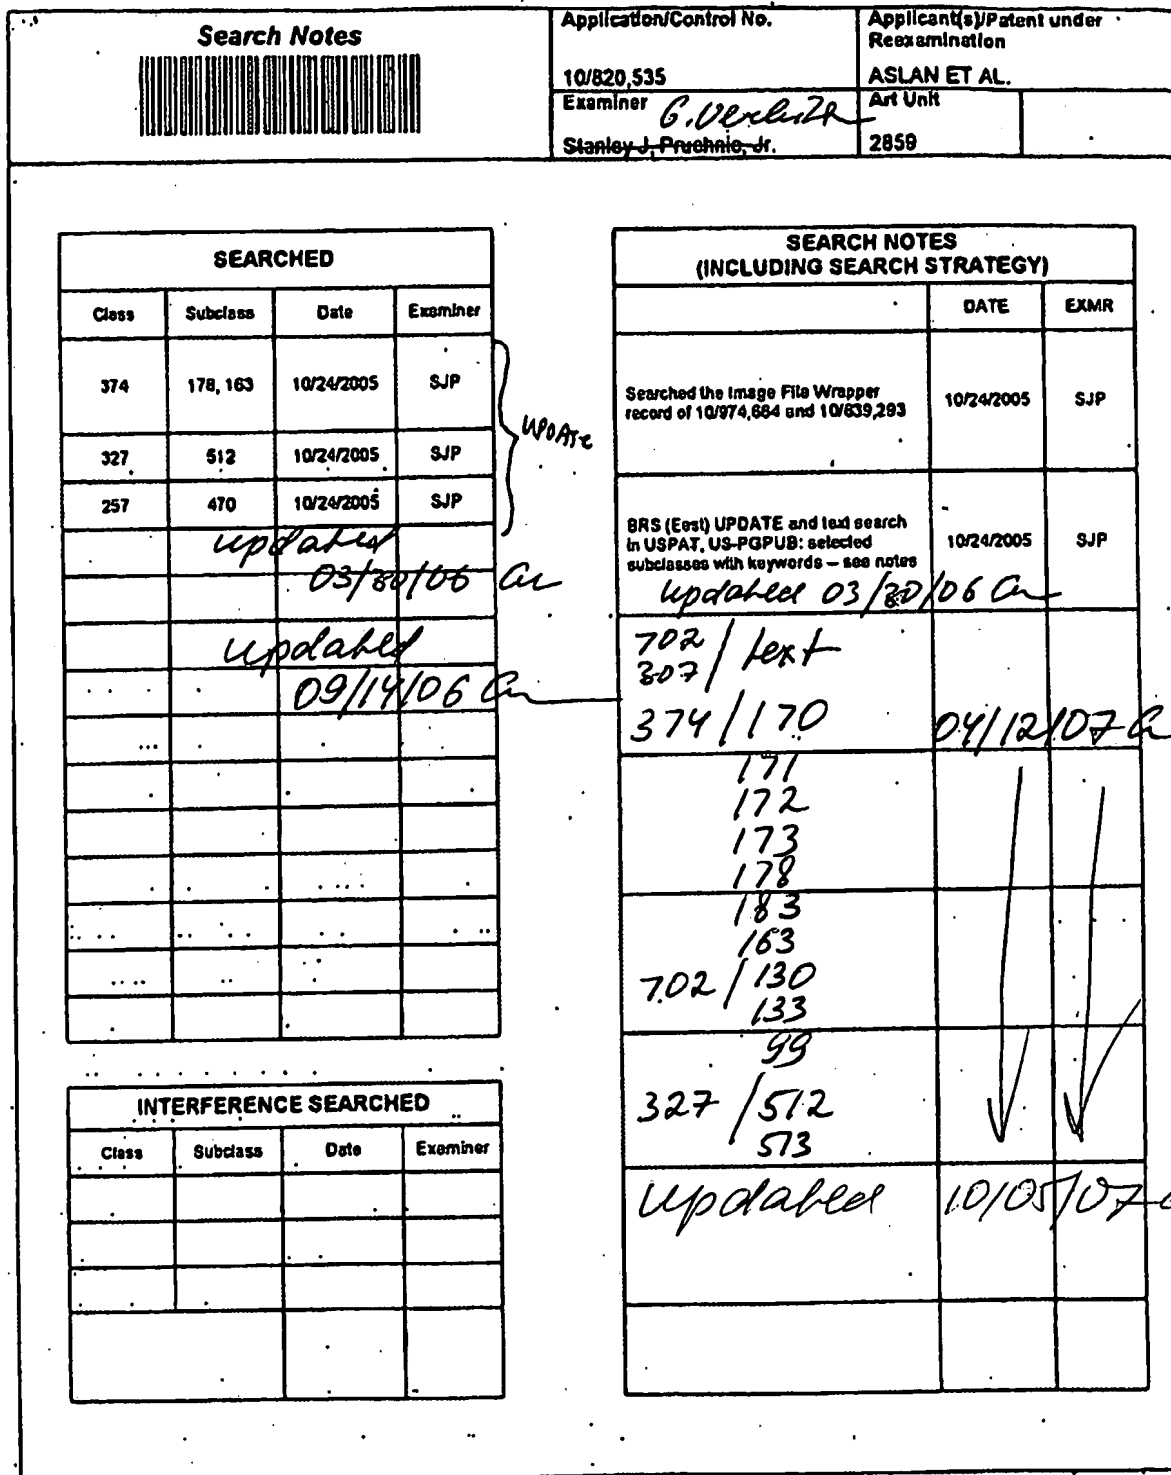 Search Notes
Application/Control No.
10/820,535
Applicant(s)/Patent under
Reexamination
ASLAN ET AL.
Examiner
Stanley J. Pruchnic, Jr.
Art Unit
2859
SEARCHED
Class Subclass Date Examiner
374 178, 163 10/24/2005 SJP
327 512 10/24/2005 SJP
257 470 10/24/2005 SJP
UPDATE
updated
03/30/06
updated
09/14/06
INTERFERENCE SEARCHED
Class Subclass Date Examiner
SEARCH NOTES
(INCLUDING SEARCH STRATEGY)
DATE EXMR
Searched the Image File Wrapper
record of 10/974,664 and 10/639,293 10/24/2005 SJP
BRS (East) UPDATE and text search
in USPAT, US-PGPUB: selected
subclasses with keywords – see notes 10/24/2005 SJP
updated 03/30/06
702
307 / text
374 / 170 04/12/07
171
172
173
178
183
163
702 / 130
133
99
327 / 512
513
updated 10/05/07